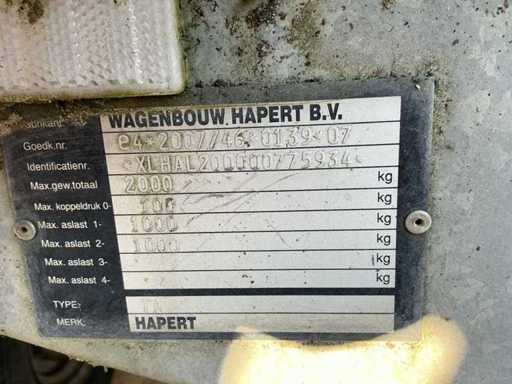 WAGENBOUW HAPERT B.V.
Goedk.nr. e4*2007/46*0139*07
Identificatienr. *XLHAL200000775934*
Max.gew.totaal 2000 kg
Max. koppeldruk 0- 100 kg
Max. aslast 1- 1000 kg
Max. aslast 2- 1000 kg
Max. aslast 3- kg
Max. aslast 4- kg
TYPE:
MERK: HAPERT